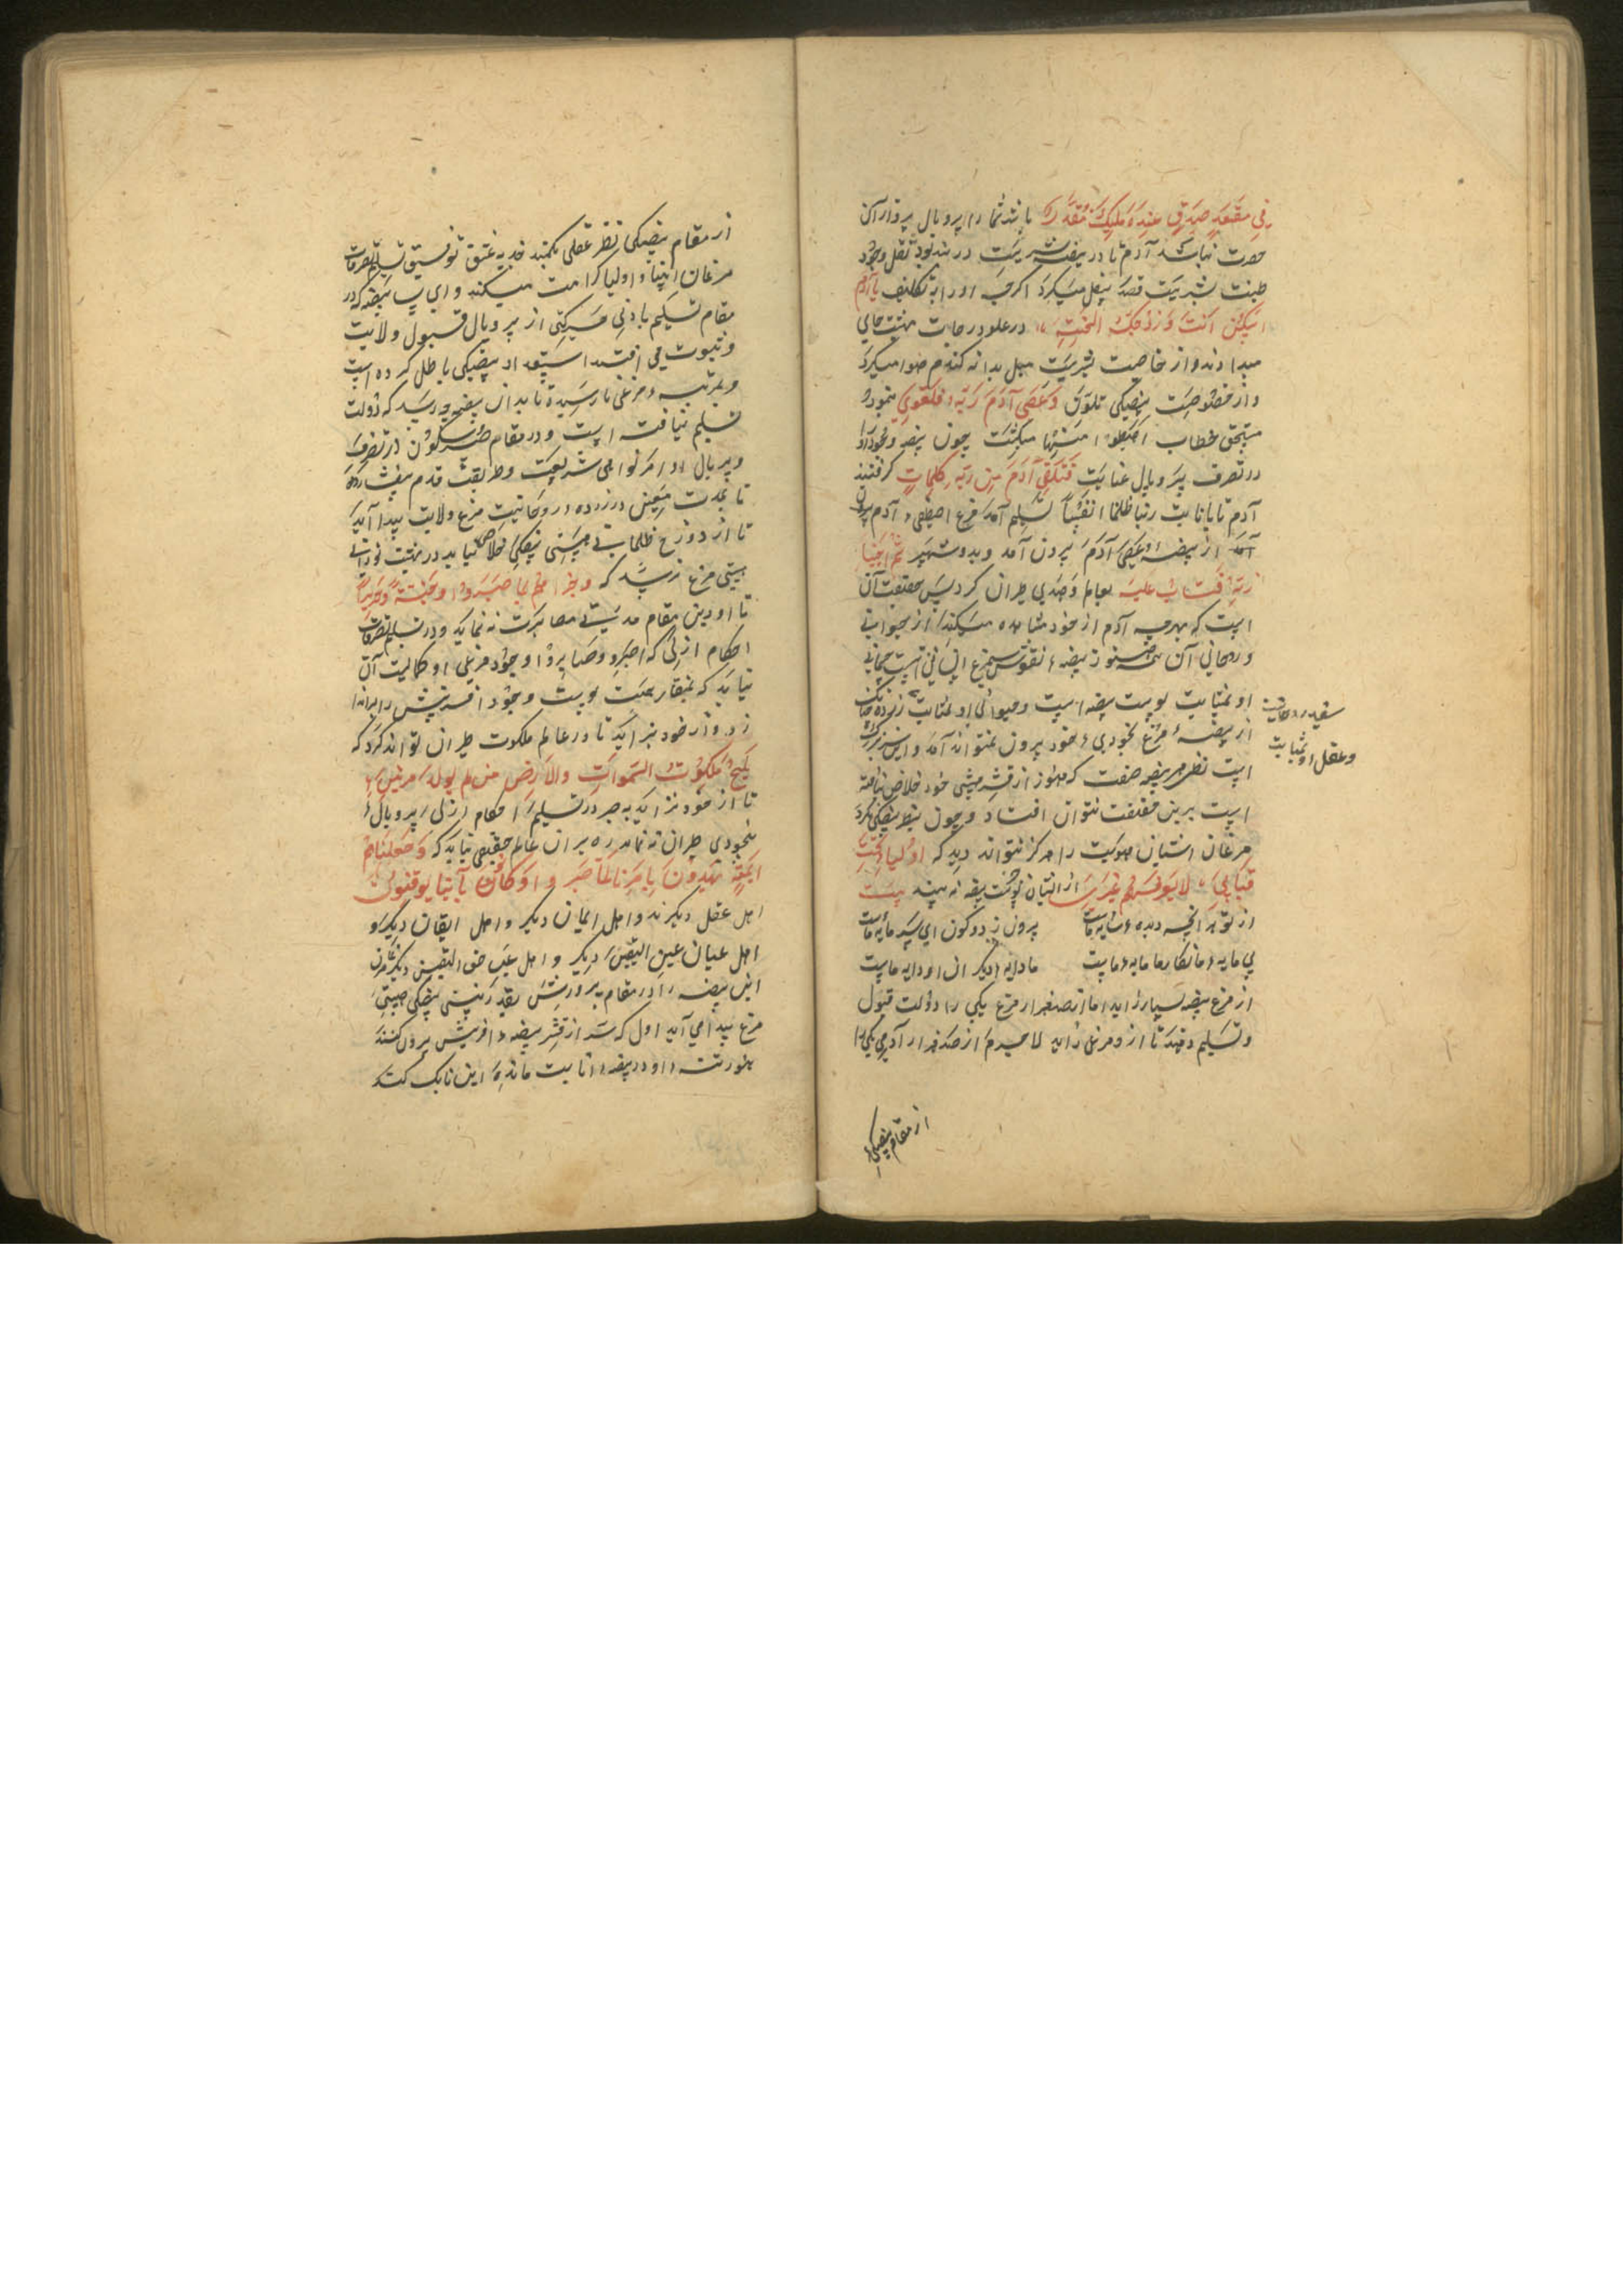 فی مقعد صدق عند ملیک مقتدر باشد شما را پر و بال پرواز آن
حضرت نباشد آدم تا در بیضه بشریت در بند بود ثقل وجود
طینت بشریت قصد سفل میکرد اگرچه او را به تکلیف یا آدم
اسکن انت وزوجک الجنة در علو درجات بهشت جای
میدادند و از خاصیت بشریت میل بدانه گندم هوا میکرد
و از خصوصیت بیضیکی تلوّن وعصی آدم ربه فغوی می‌نمود
مستحق خطاب اهبطوا منها میکشت چون بیضه وجود او را
در تصرف پر و بال عنایت فتلقی آدم من ربه کلمات گرفتند
آدم تا بانابت ربنا ظلمنا انفسنا تسلیم آمد مرغ اصطفی آدم بیرون
آمد از بیضه وعصی آدم بیرون آمد و بدو شهپر ثم اجتباه
ربه فتاب علیه بعالم وحدت طیران کرد پس حقیقت آن
است که هرچه آدم از خود مشاهده میکند از حیوانی
و روحانی آن همه هنوز بیضه نفوس مرغ انسانی است جسمانی
او بمثابت پوست بیضه است و حیوانی او بمثابت زرده چنانک
سفیده روحانیت
وعقل او بمثابت
از بیضه مرغ بخودی خود بیرون نمیتواند آمد و این سر بزرگ
است نظر هر بیضه صفت که هنوز از قشر هستی خود خلاص نیافته
است برین حقیقت نتوان افتاد و چون بنظر بیضیکی نکرد
مرغان آشیان هویت را هرگز نتواند دید که اولیائی تحت
قبابی لا یعرفهم غیری از ایشان جز پوست بیضه نه بیند بیت
از تو هر آنچه دیده سایه ماست
بیرون ز دو کون ای پسر مایه ماست
بی مایه ما نکار ما مایه ماست
ما دایه دیکران او دایه ماست
از مرغ بیضه بسیار زاید اما از صد هزار مرغ یکی را دولت قبول
و تسلیم دهند تا از و مرغی زاید لاجرم از صد هزار آدمی یکی را
از مقام بیضیکی
از مقام بیضیکی نظر عقلی بکمند جذبه عشق توفیق تسلیم تصرفات
مرغان انبیا و اولیا کرامت میکنند و ای بسا بیضه که در
مقام تسلیم بادنی حرکتی از پر و بال قبول ولایت
و نبوت می افتد استعداد بیضیکی باطل کرده است
و بمرتبه مرغی نارسیده تا بدان بیضه چه رسد که دولت
تسلیم نیافته است و در مقام صبر و سکون در تصرف
و پر بال اوامر نواهی شریعت و طریقت قدم بیفشارد
تا بمدت معین در زرده روحانیت مرغ ولایت پیدا آید
تا از دوزخ ظلمانی هستی بیضیکی خلاص نیابد در بهشت نورانی
هستی مرغ نرسد که وجزاهم بما صبروا جنة وحریرا
تا او درین مقام مدتی مصابرت نه نماید و در تسلیم تصرفات
احکام ازلی که اصبروا وصابروا وجود مرغی او کمالیت آن
نیابد که بمنقار همت پوست وجود آفرینش را براندازد
زد و از خود نبرآید تا در عالم ملکوت طیران تواند کرد که
یلج ملکوت السموات والارض من لم یولد مرتین
تا از خود نزاید به صبر در تسلیم احکام ازلی پر و بال
بیخودی طیران نه نماید ره بر آن عالم حقیقی نیابد که وجعلناهم
ائمة یهدون بامرنا لما صبروا وکانوا بآیتنا یوقنون
اهل عقل دیگرند و اهل ایمان دیگر و اهل ایقان دیگر و
اهل عیان عین الیقین دیگر و اهل عیب حق الیقین دیگر مرغ
این بیضه را در مقام پرورش بقدر نیستی بیضیکی هستی
مرغ پیدا می آید اول که سر از قشر بیضه آفرینش بیرون کنند
بخورتنه او در بیضه انابیت مانده این بانک کند